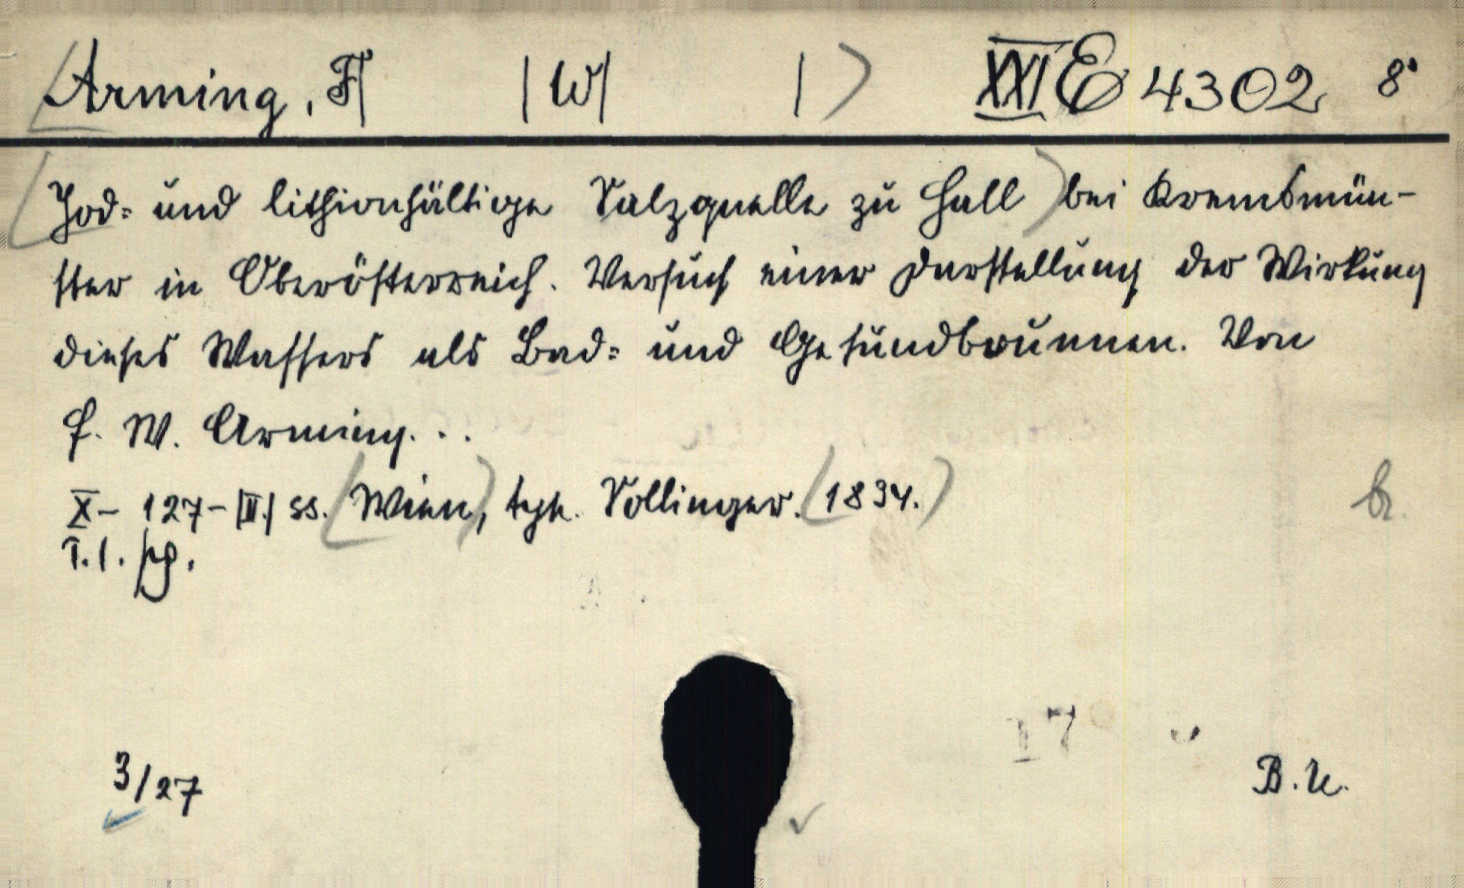 Arming, F| |W| | XXI E 4302 8°
Jod- und lithionhältige Salzquelle zu Hall bei Kremsmün-
ster in Oberösterreich. Versuch einer Darstellung der Wirkung
dieses Wassers als Bad- und Gesundbrunnen. Von
F. W. Arming...
X- 127-|II.| ss. Wien, typ. Sollinger. 1834.
br.
T. I. pg.
I 7
3/27
B. U.